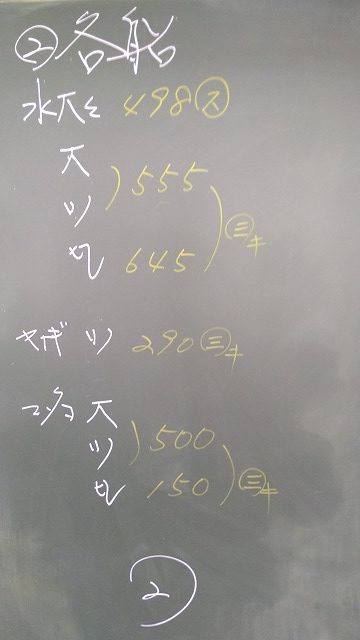 ②各船
水大セ 498㋜
大
ツ ) 555
セ 645 ) ㊂キ
ヤギ ツ 290㊂キ
マダコ 大
ツ ) 500
セ 150 ) ㊂キ
②